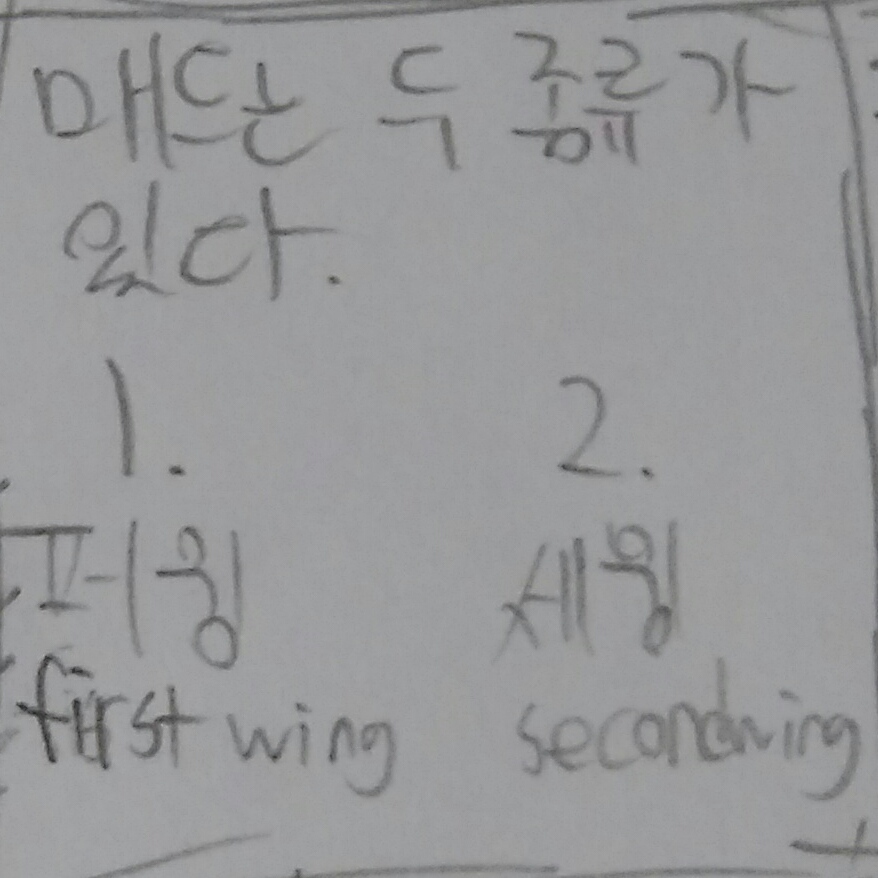 매드는 두 종류가
있다.
1. 2.
퍼윙 세윙
first wing secondwing